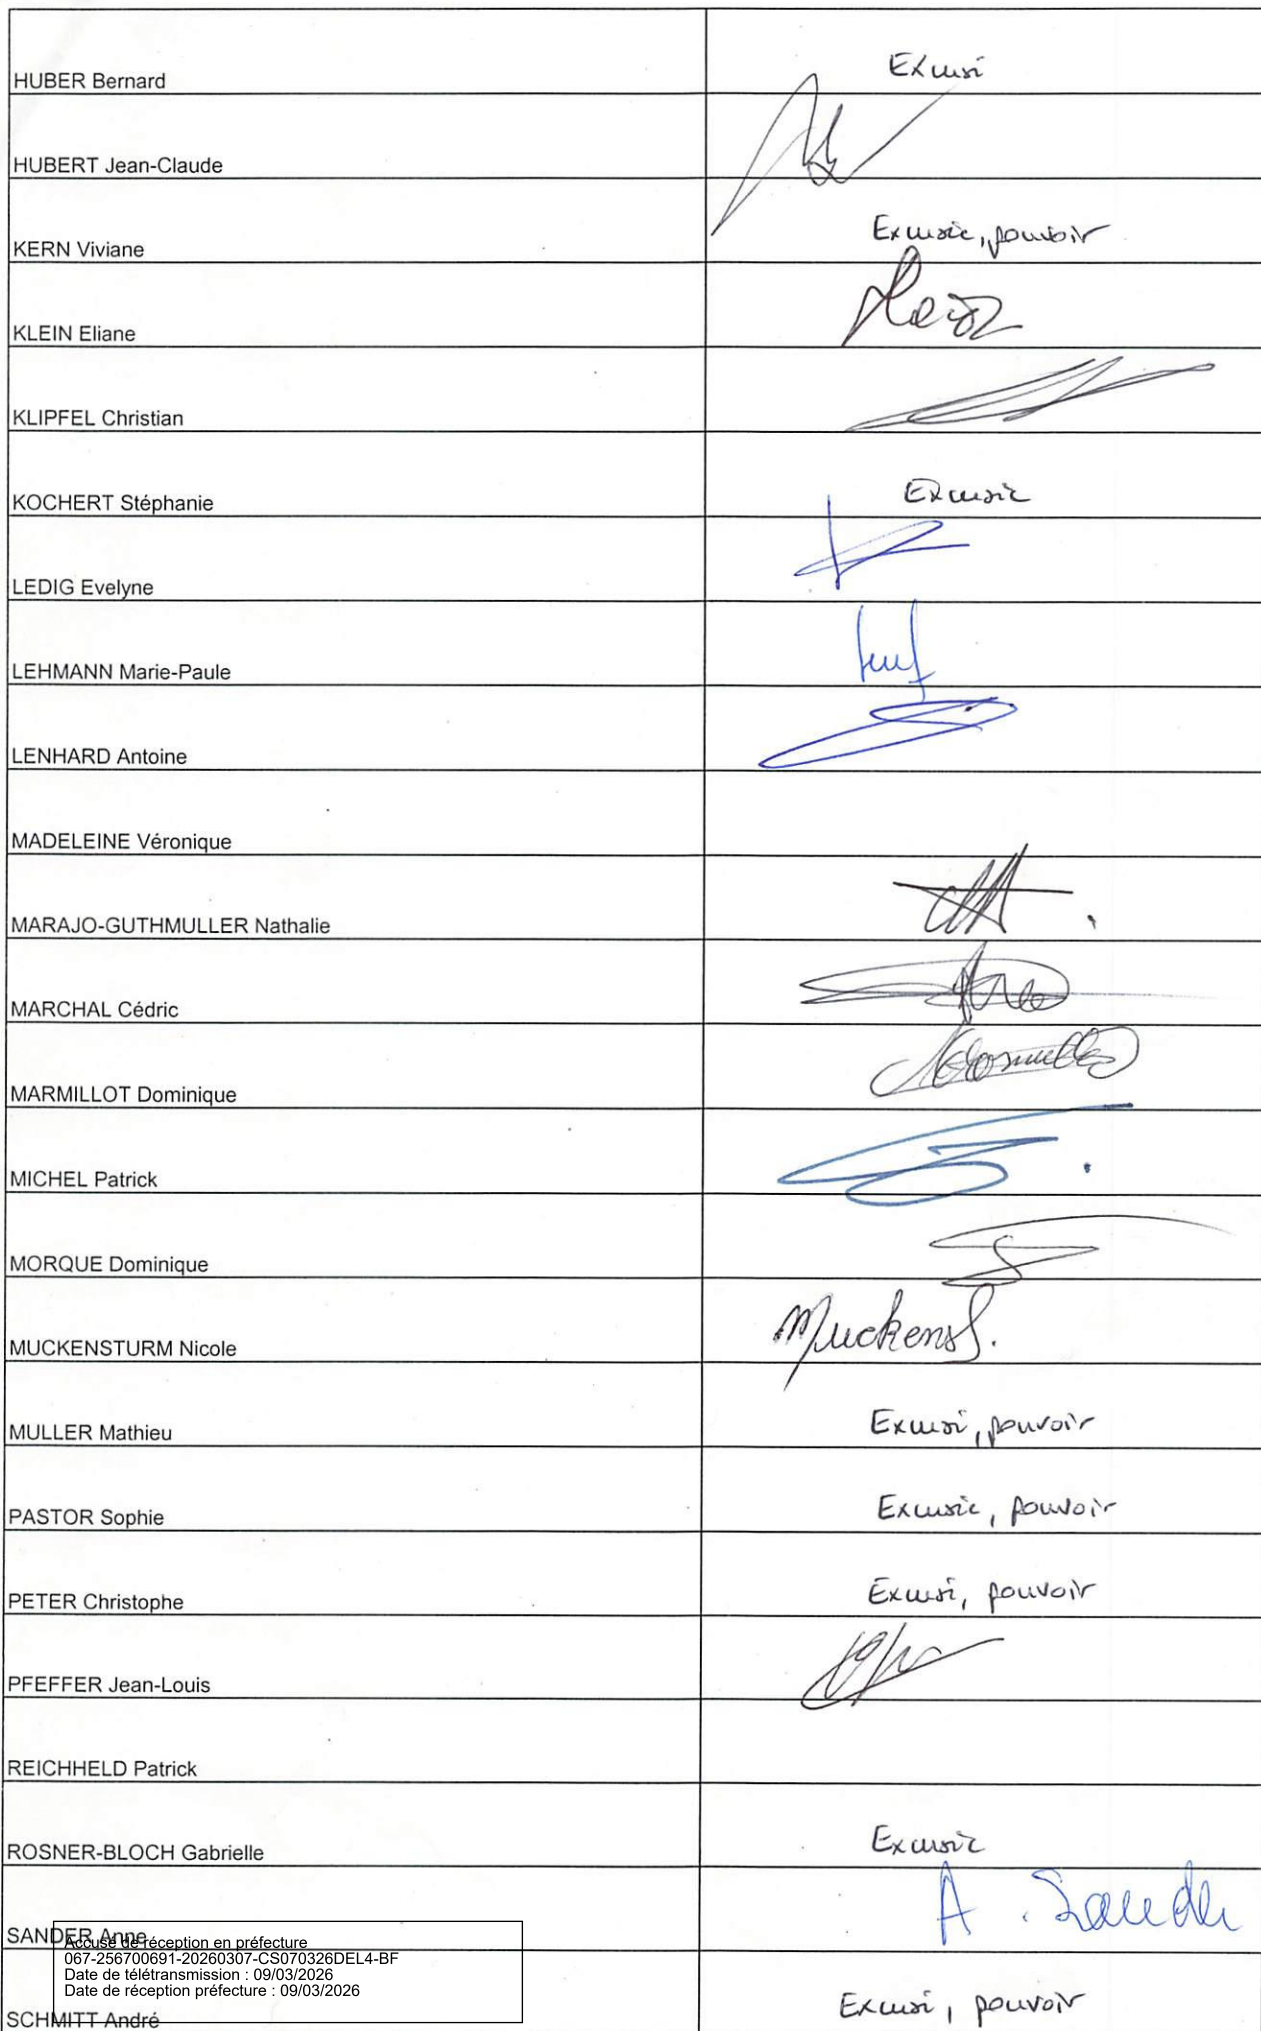 HUBER Bernard Excusé
HUBERT Jean-Claude
KERN Viviane Excusée, pouvoir
KLEIN Eliane
KLIPFEL Christian
KOCHERT Stéphanie Excusée
LEDIG Evelyne
LEHMANN Marie-Paule
LENHARD Antoine
MADELEINE Véronique
MARAJO-GUTHMULLER Nathalie
MARCHAL Cédric
MARMILLOT Dominique
MICHEL Patrick
MORQUE Dominique
MUCKENSTURM Nicole Muckens
MULLER Mathieu Excusé, pouvoir
PASTOR Sophie Excusée, pouvoir
PETER Christophe Excusé, pouvoir
PFEFFER Jean-Louis
REICHHELD Patrick
ROSNER-BLOCH Gabrielle Excusée
SANDER Anne A. Sander
Accusé de réception en préfecture
067-256700691-20260307-CS070326DEL4-BF
Date de télétransmission : 09/03/2026
Date de réception préfecture : 09/03/2026
SCHMITT André Excusé, pouvoir